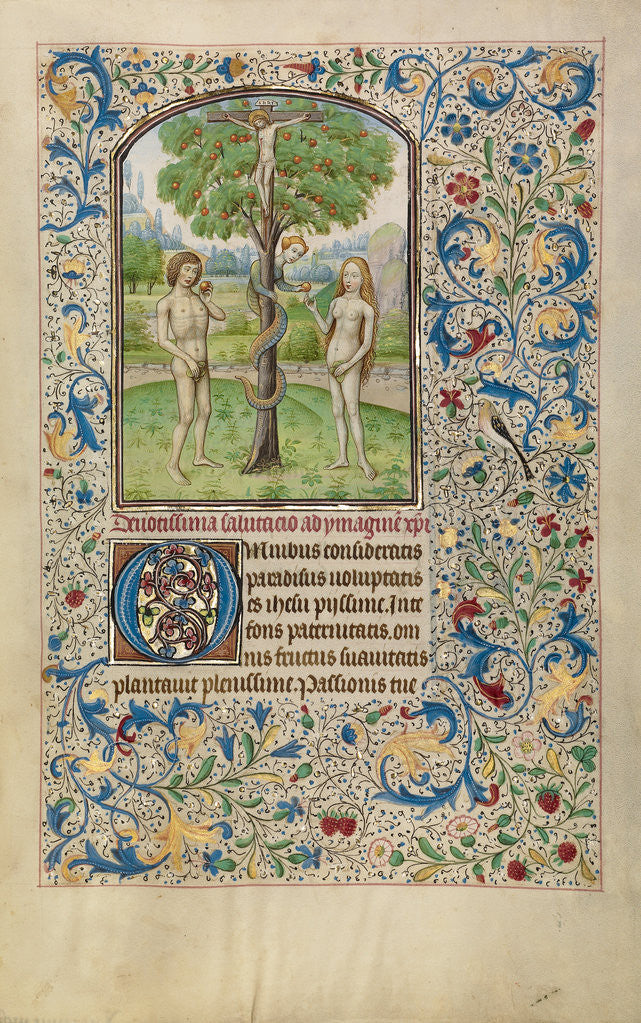 INRI
Devotissima salutacio ad ymaginē xpi
Omnibus consideratis
paradisus uoluptatis
es ihesu pijssime. In te
fons paternitatis. om
nis fructus suauitatis
plantauit plenissime. Passionis tue